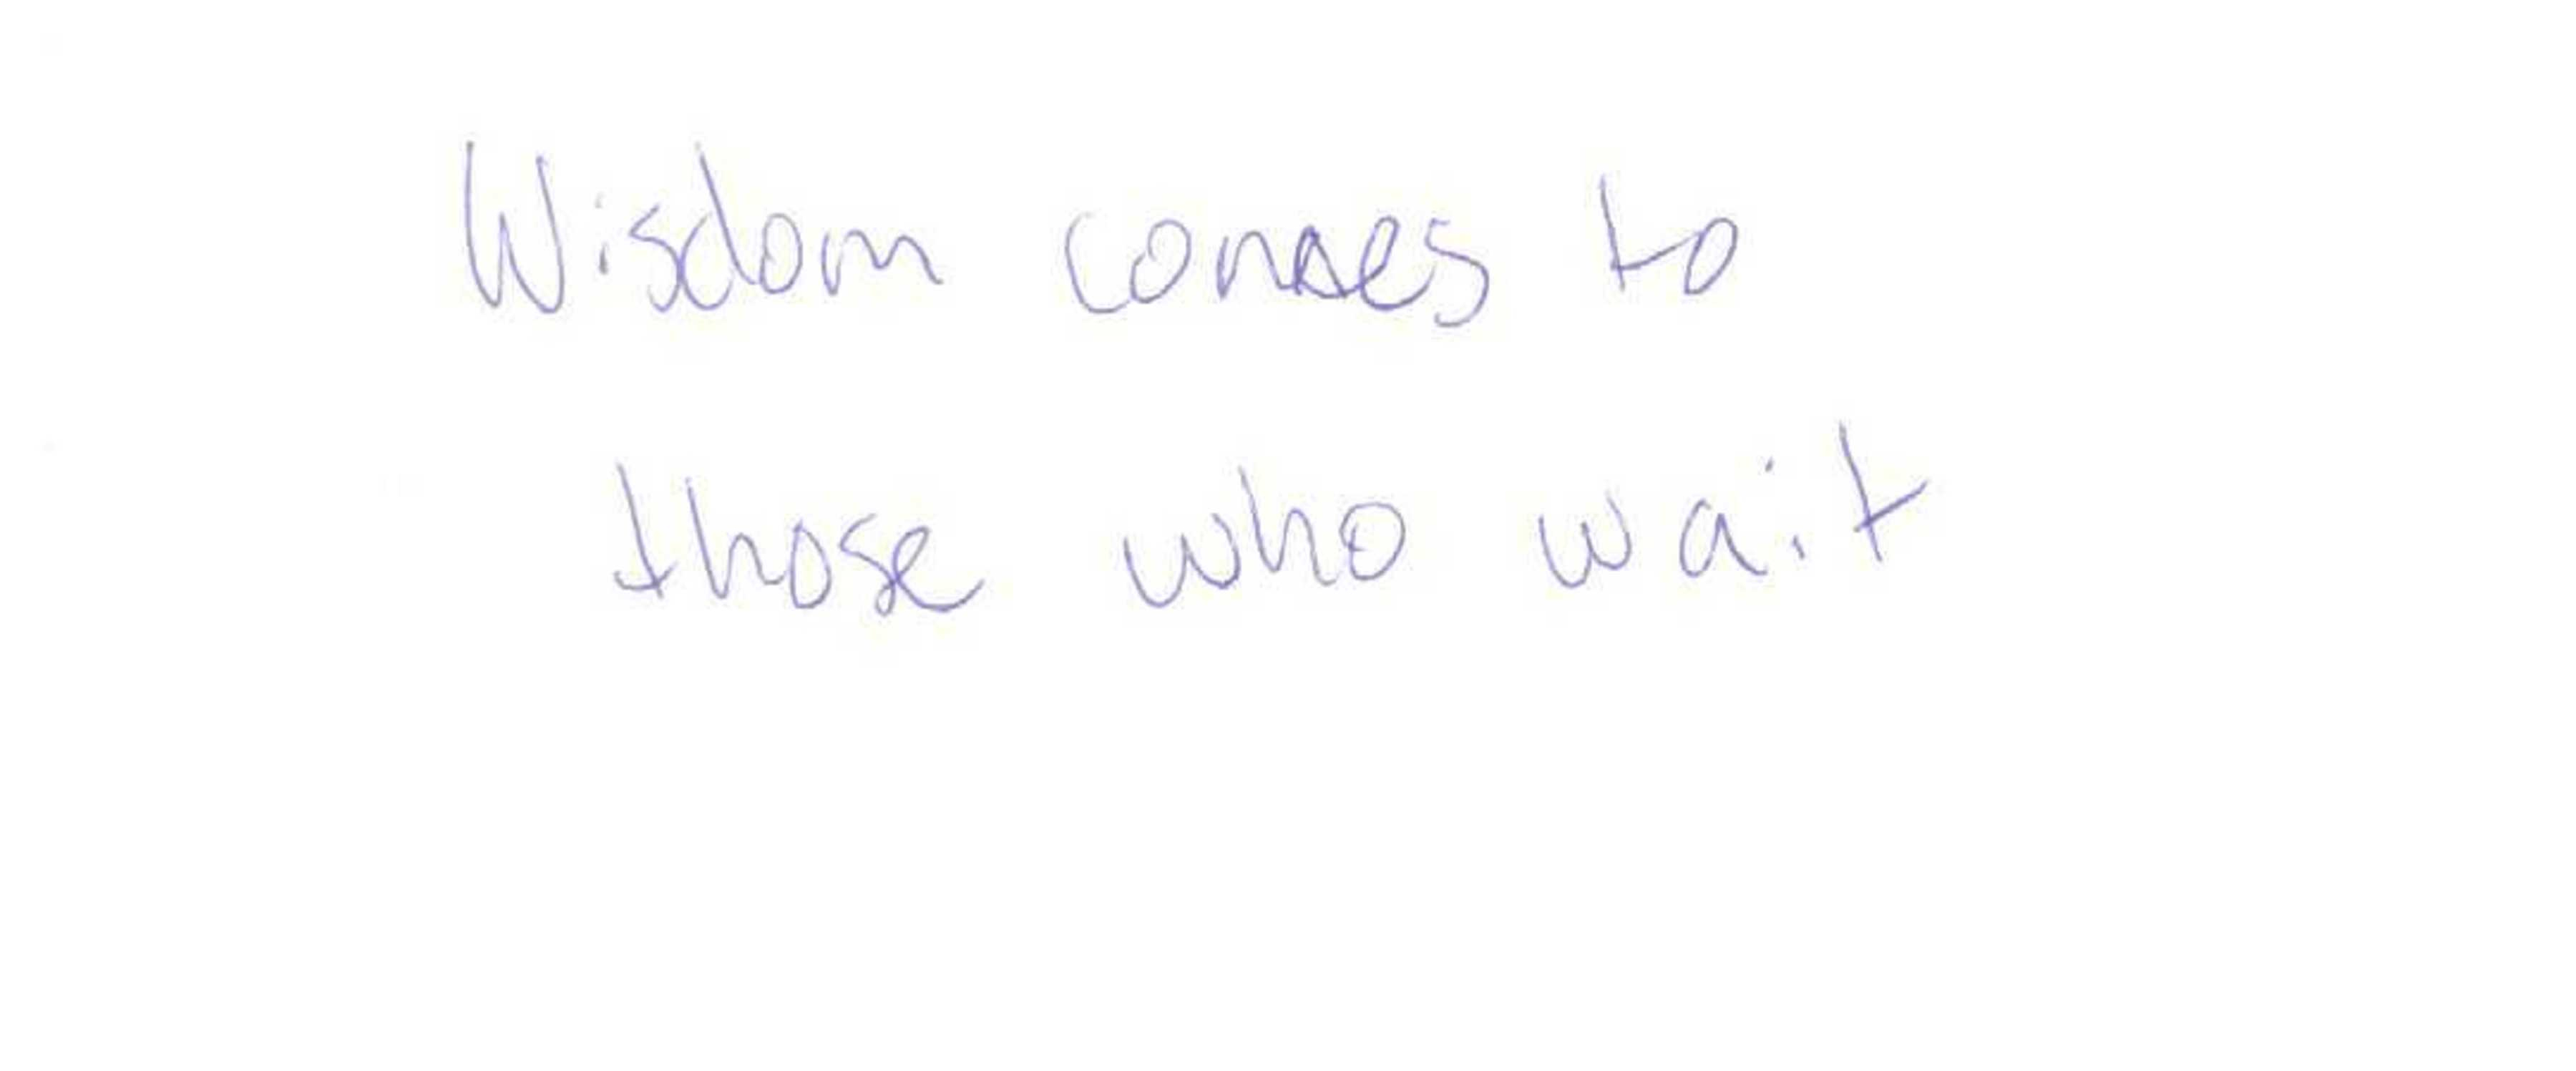 Wisdom comes to
those who wait